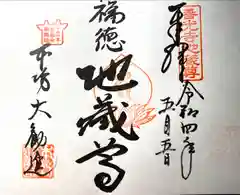 奉拝
令和四年
五月五日
福徳
地蔵尊
本坊大勧進